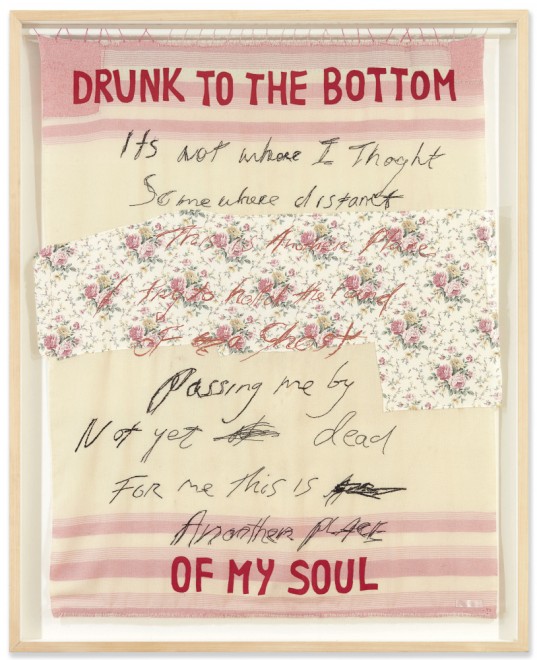 DRUNK TO THE BOTTOM
Its not where I Thoght
Somewhere distant
This is Another Place
I try to hold the hand
of a Ghost
Passing me by
Not yet dead
For me This is
Anorther place
OF MY SOUL